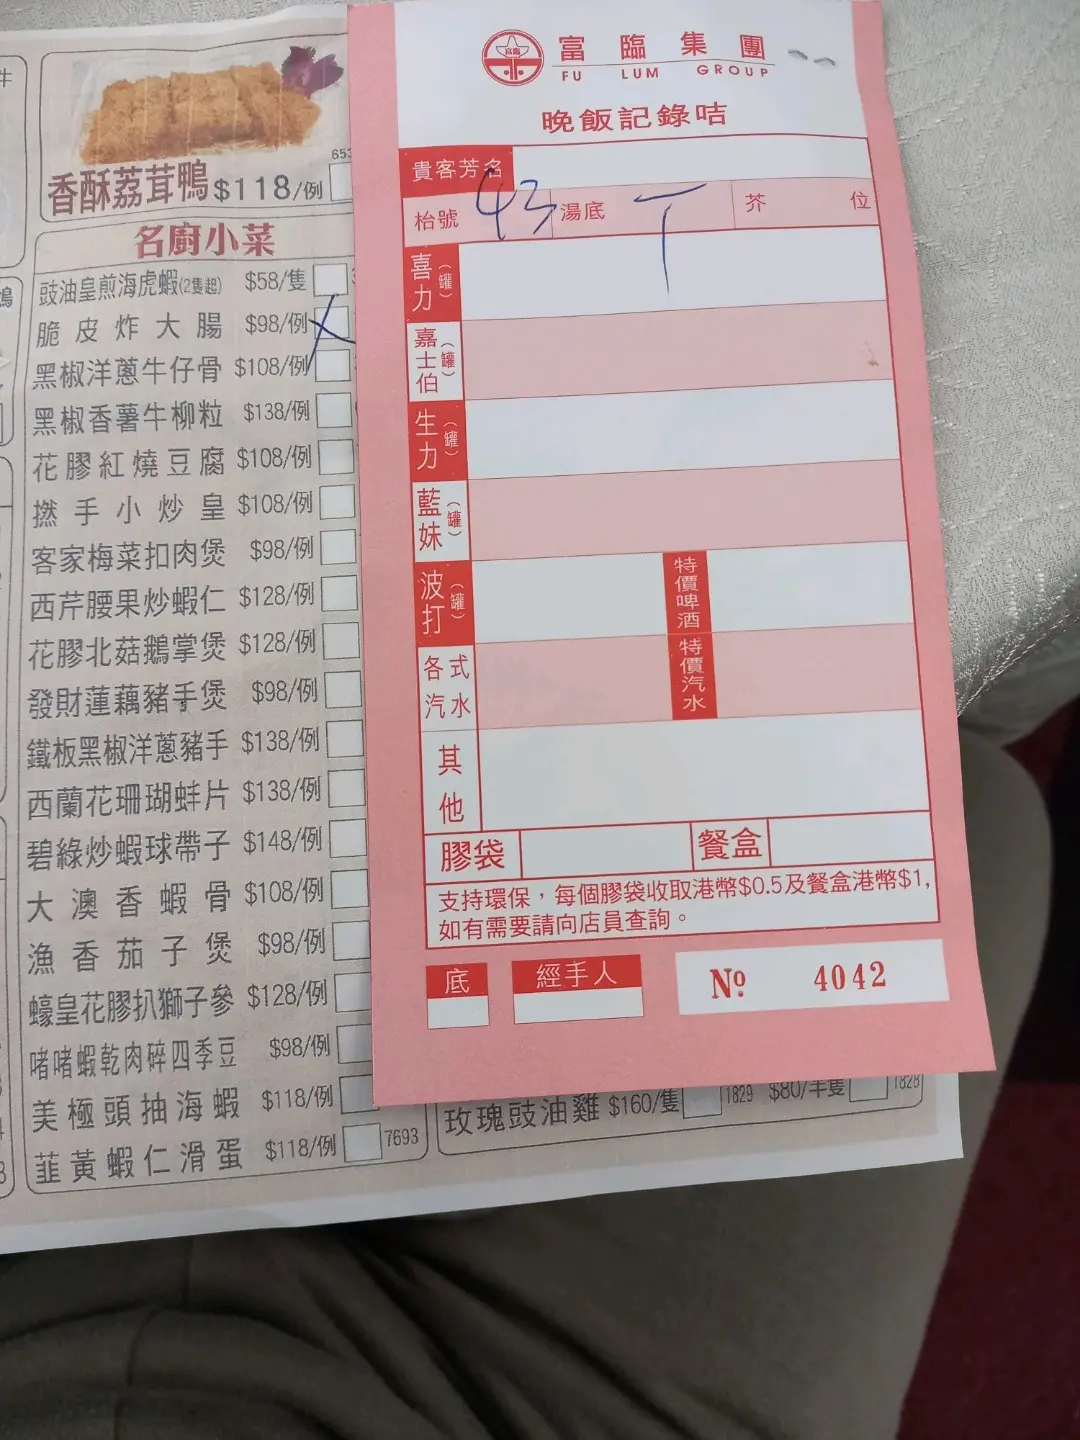 香酥荔茸鴨 $118/例
名廚小菜
豉油皇煎海虎蝦(2隻起) $58/隻
脆皮炸大腸 $98/例
黑椒洋蔥牛仔骨 $108/例
黑椒香薯牛柳粒 $138/例
花膠紅燒豆腐 $108/例
撚手小炒皇 $108/例
客家梅菜扣肉煲 $98/例
西芹腰果炒蝦仁 $128/例
花膠北菇鵝掌煲 $128/例
發財蓮藕豬手煲 $98/例
鐵板黑椒洋蔥豬手 $138/例
西蘭花珊瑚蚌片 $138/例
碧綠炒蝦球帶子 $148/例
大澳香蝦骨 $108/例
漁香茄子煲 $98/例
蠔皇花膠扒獅子參 $128/例
啫啫蝦乾肉碎四季豆 $98/例
美極頭抽海蝦 $118/例
韮黃蝦仁滑蛋 $118/例 7693
富臨 富臨集團
FU LUM GROUP
晚飯記錄咭
貴客芳名
枱號 43 湯底 T 芥 位
喜力(罐)
嘉士伯(罐)
生力(罐)
藍妹(罐)
波打(罐) 特價啤酒
各式汽水 特價汽水
其他
膠袋 餐盒
支持環保，每個膠袋收取港幣$0.5及餐盒港幣$1,
如有需要請向店員查詢。
底 經手人 Nº 4042
玫瑰豉油雞 $160/隻 1829 $80/半隻 1828